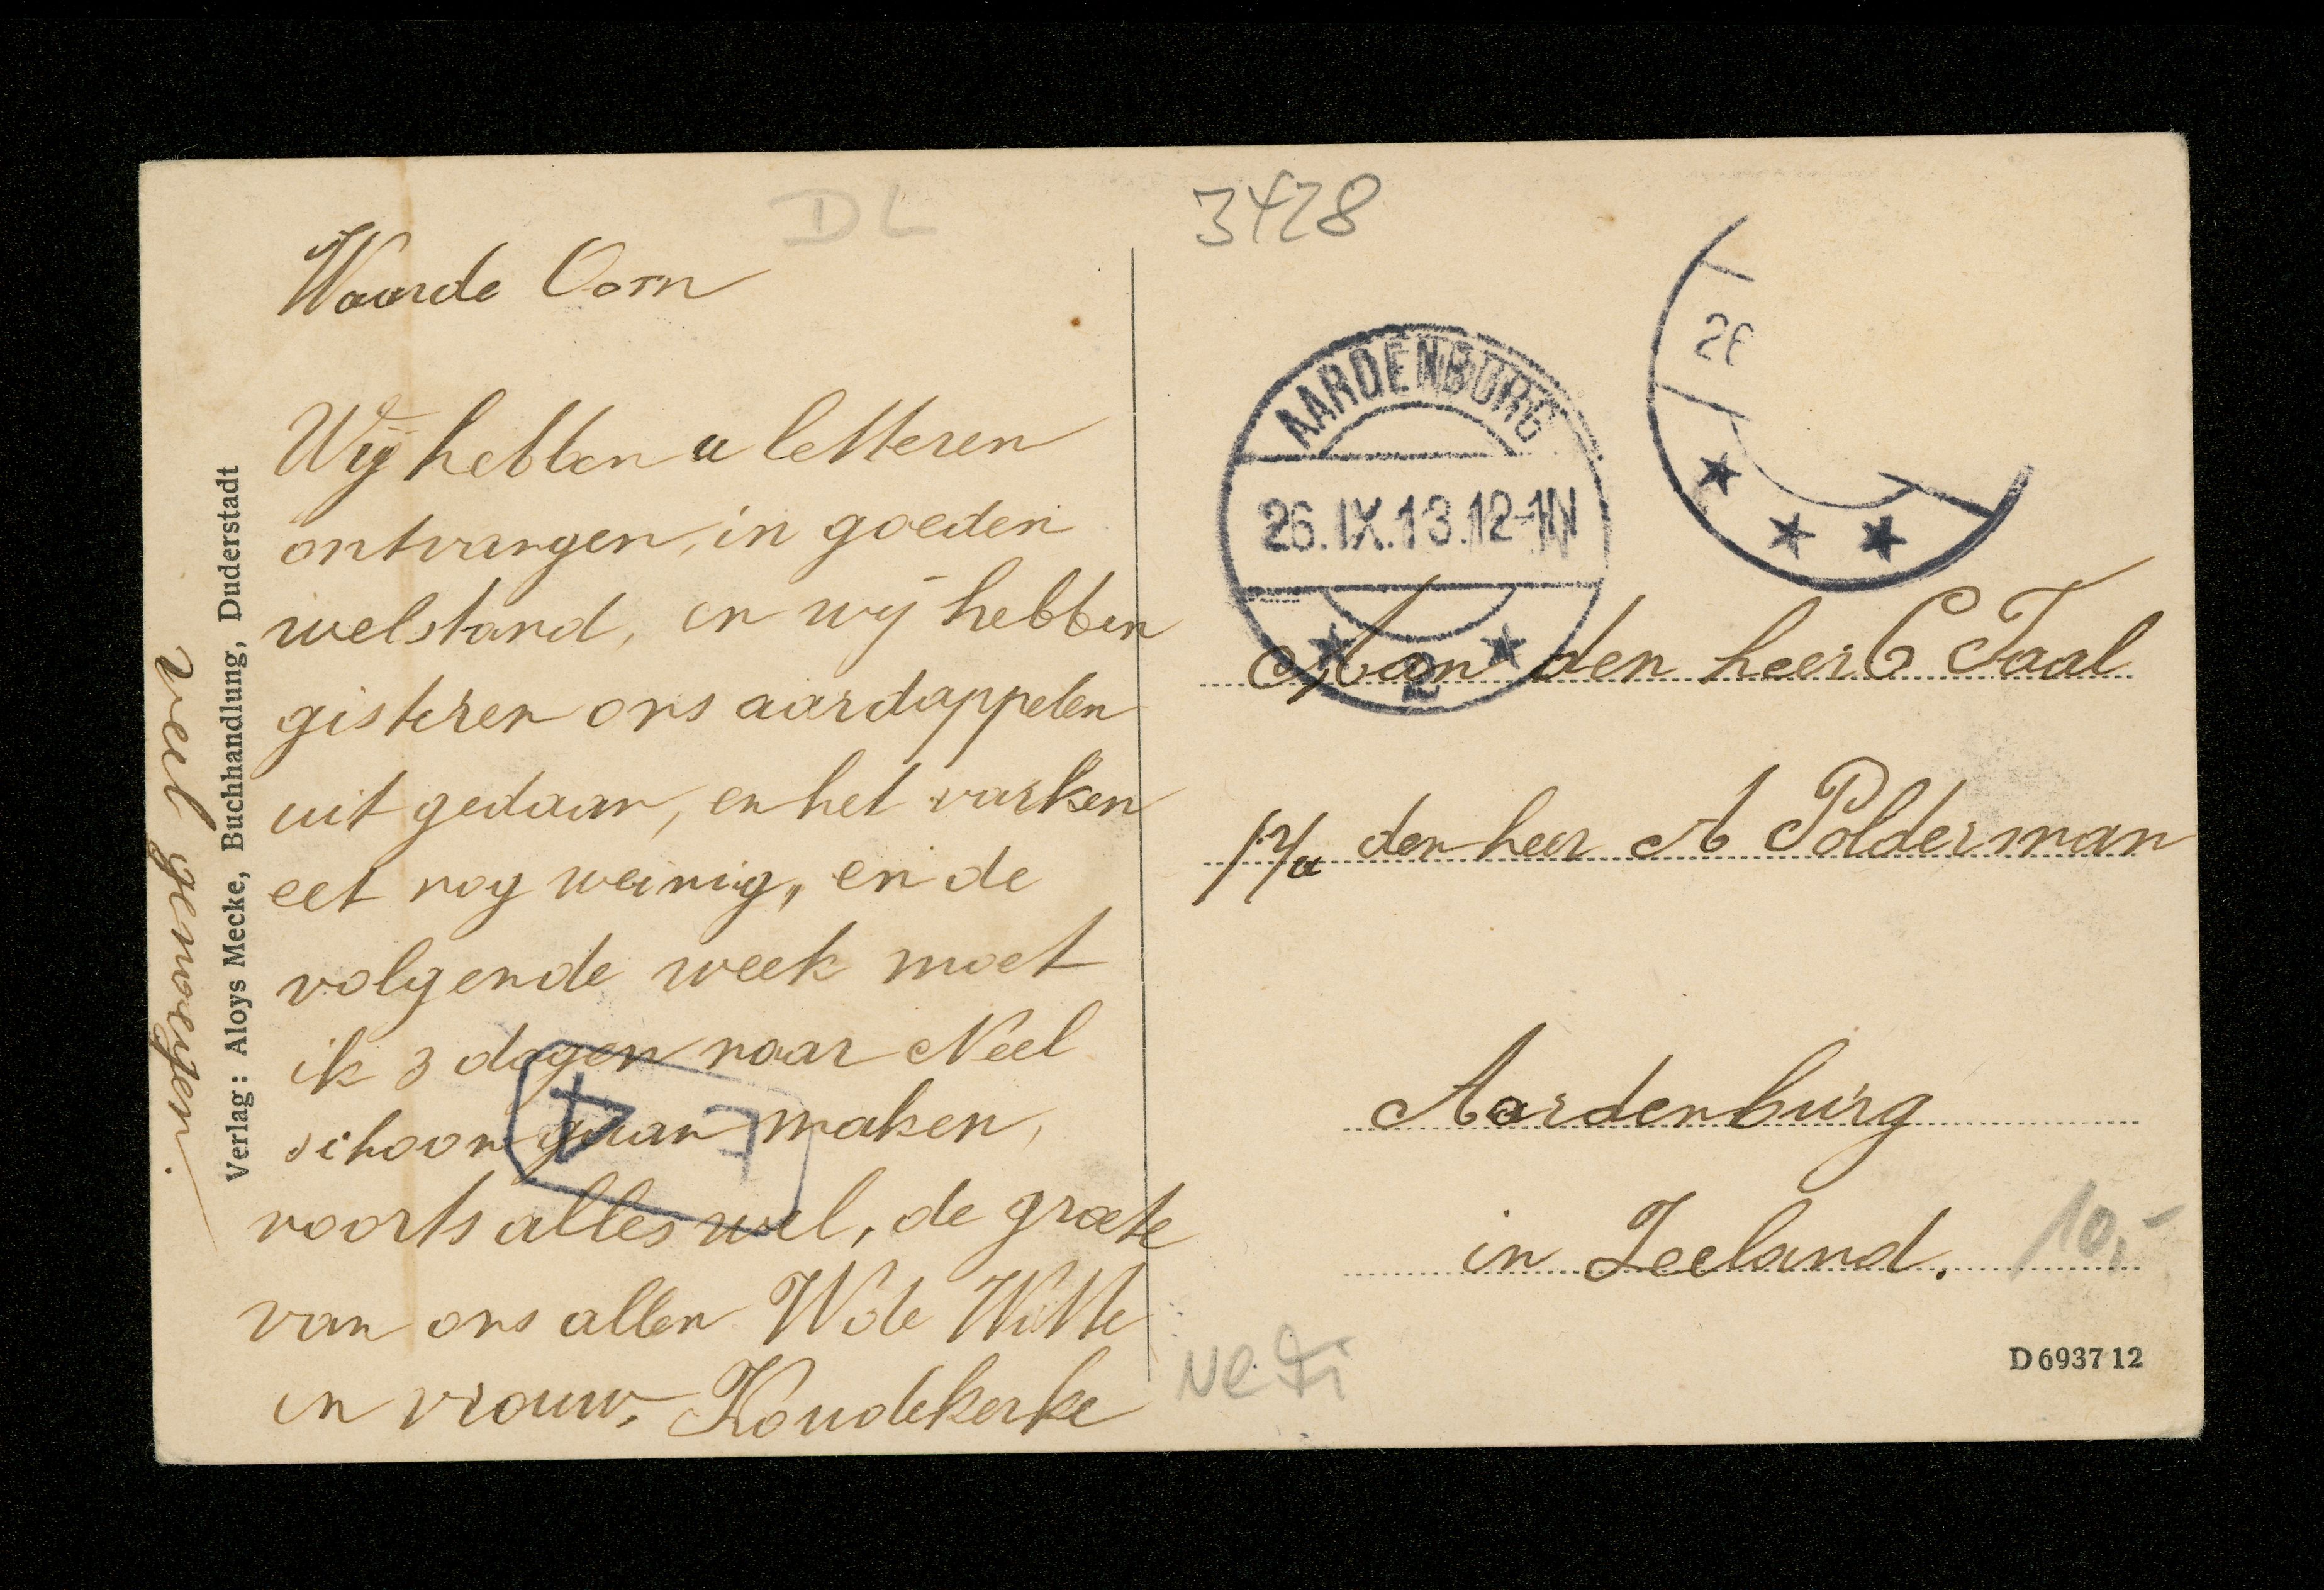 DL
Waarde Oom
Wij hebben u letteren
ontvangen, in goeden
welstand, en wij hebben
gisteren ons aardappelen
uit gedaan, en het varken
eet nog weinig, en de
volgende week moet
ik 3 dagen naar Neel
schoon gaan maken,
voorts alles wel, de groete
van ons allen W de Witte
en vrouw. Koudekerke
veel genoegen.
Verlag: Aloys Mecke, Buchhandlung, Duderstadt
4
3428
AARDENBURG
26.IX.13.12-1N
2
26
Aan den heer C Taal
p/a den heer A Polderman
Aardenburg
in Zeeland.
10,-
D 6937 12